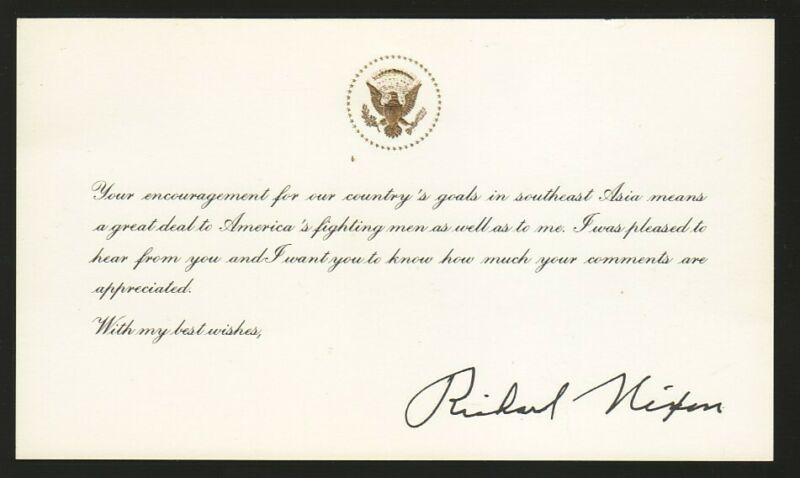 Your encouragement for our country's goals in southeast Asia means
a great deal to America's fighting men as well as to me. I was pleased to
hear from you and I want you to know how much your comments are
appreciated.
With my best wishes,
Richard Nixon